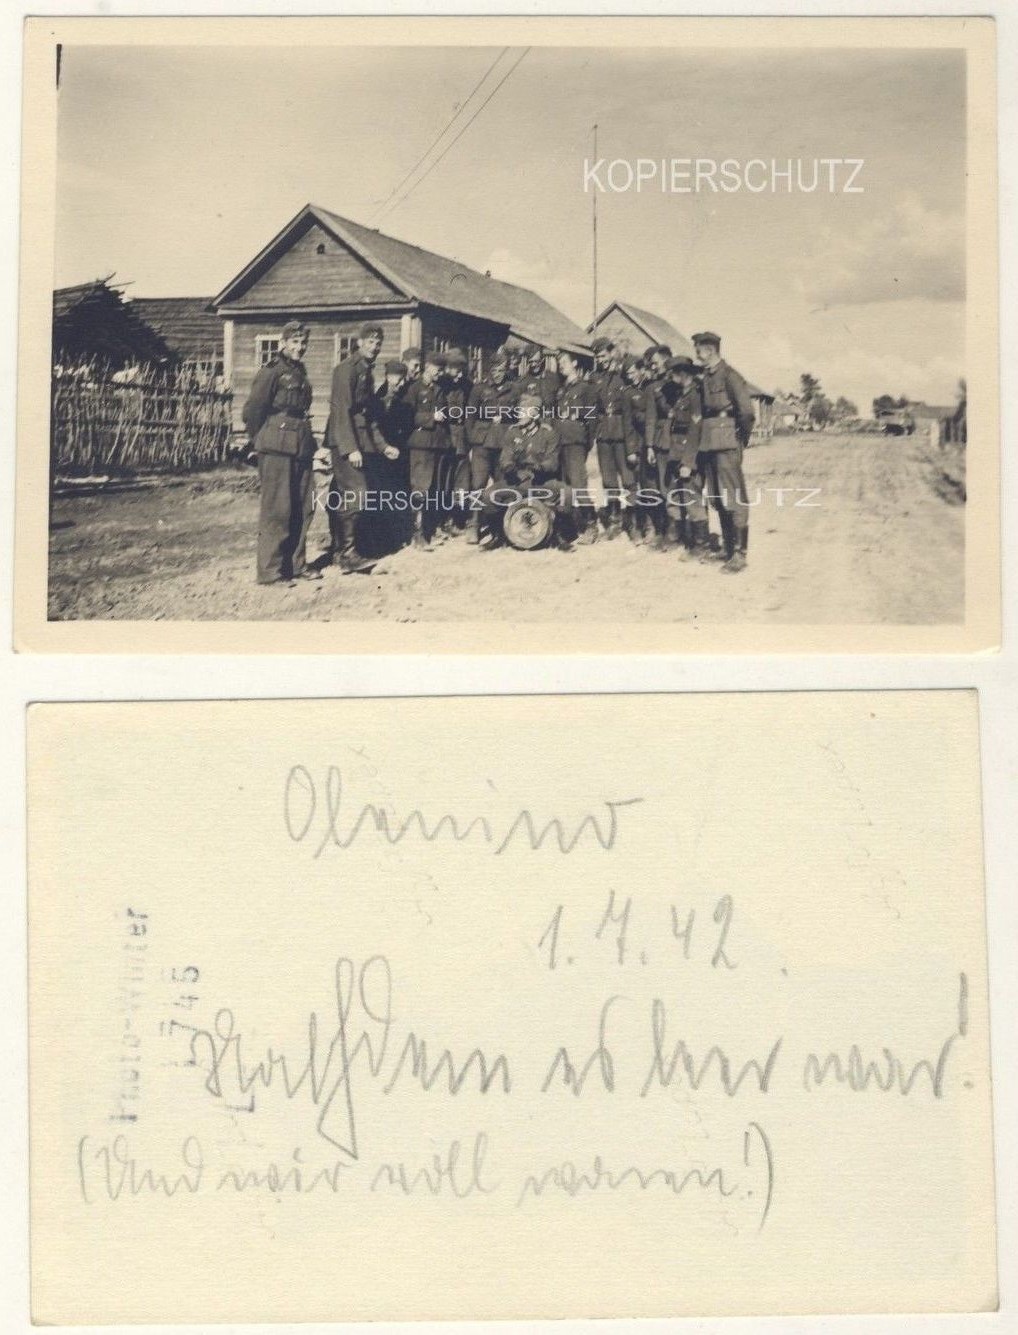 KOPIERSCHUTZ
KOPIERSCHUTZ
KOPIERSCHUTZ
KOPIERSCHUTZ
Olenino
1.7.42.
Nachdem es leer war!
(Und wir voll waren!)
Photo-Winter
1745